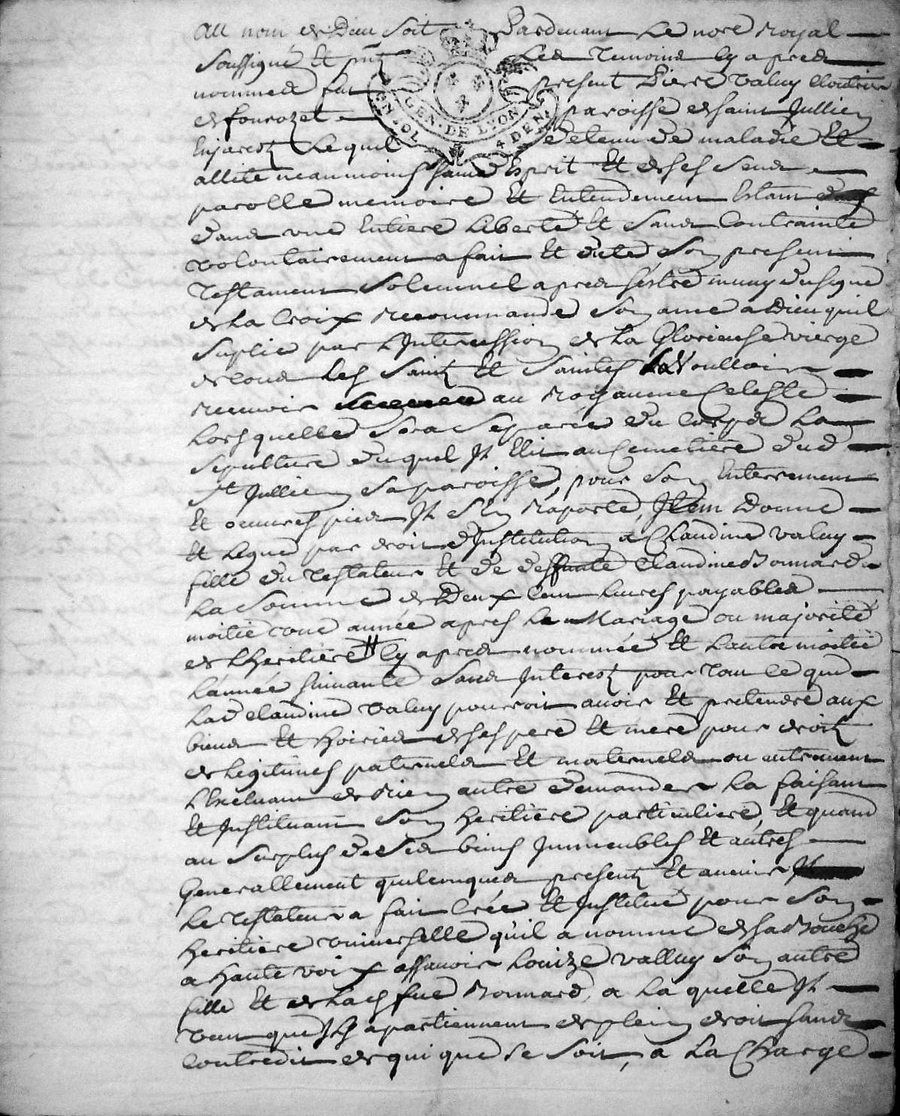 Au nom de Dieu soit Pardevant Le nore Royal
Soussigné Et pnt Les Temoins Cy apres
nommes fut present Pierre Valuy Cloutier
de fourozet paroisse de saint Jullien
GEN. DE LYON
4 DEN.
Enjarest Lequel detenu de maladie Et
allite neanmoins sain desprit Et de ses sens
parolle memoire Et Entendement Estant
dans une Entiere Liberté Et Sans Contrainte
volontairement a fait Et dicté Son present
Testament Solemnel apres sestre muny du signe
de La Croix Recommande Son ame a dieu quil
Suplie par L'Intercession de La Glorieuse vierge
de tous Les Saints Et Saintes La Voulloir
Recevoir au Royaume Celeste
Lorsquelle Sera Separée du Corps La
Sepulture duquel Jl Elit au Cemetiere dud
St Jullien Sa paroisse, pour Son Enterrement
Et oeuvres pies Jl S'En Raporte, Jtem Donne
Et Legue par droit d'Institution a Claudine Valuy
fille du Testateur Et de deffunte Claudine Bonnard
La Somme de Deux Cent Livres payables
moitié une année apres Le Mariage ou majorité
de L'heritiere Cy apres nommée Et L'autre moitié
L'année suivante Sans Interest pour Tout Ce que
Lad Claudine Valuy pourroit avoir Et pretendre aux
biens Et hoiries de ses pere Et mere pour droits
de Legitimes paternels Et maternels ou autrement
L'Excluant de Rien autre demander La faisant
Et Jnstituant Son heritiere particuliere, Et quand
au Surplus de Ses biens Jmmeubles Et autres
Generallement quelconques presents Et avenir
Le Testateur a fait Créé Et Jnstitué pour Son
heritiere universelle qu'il a nommé de sa Bouche
a haute voix assavoir Louize Valluy Son autre
fille Et de Lad feue Bonnard, a La quelle Jl
veut que Jls apartiennent de plein droit sans
Contredit de qui que Ce Soit, a La Charge